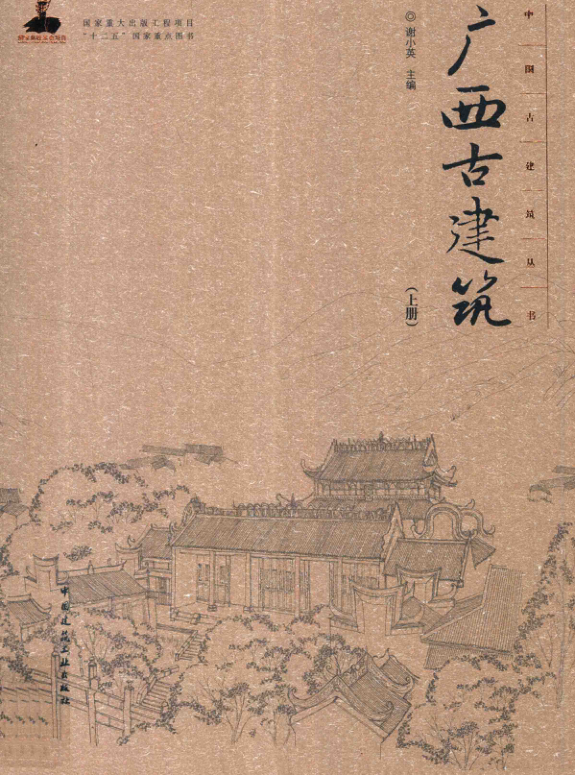 国家重大出版工程项目
“十二五”国家重点图书
中国古建筑丛书
广西古建筑
(上册)
◎ 谢小英 主编
中国建筑工业出版社